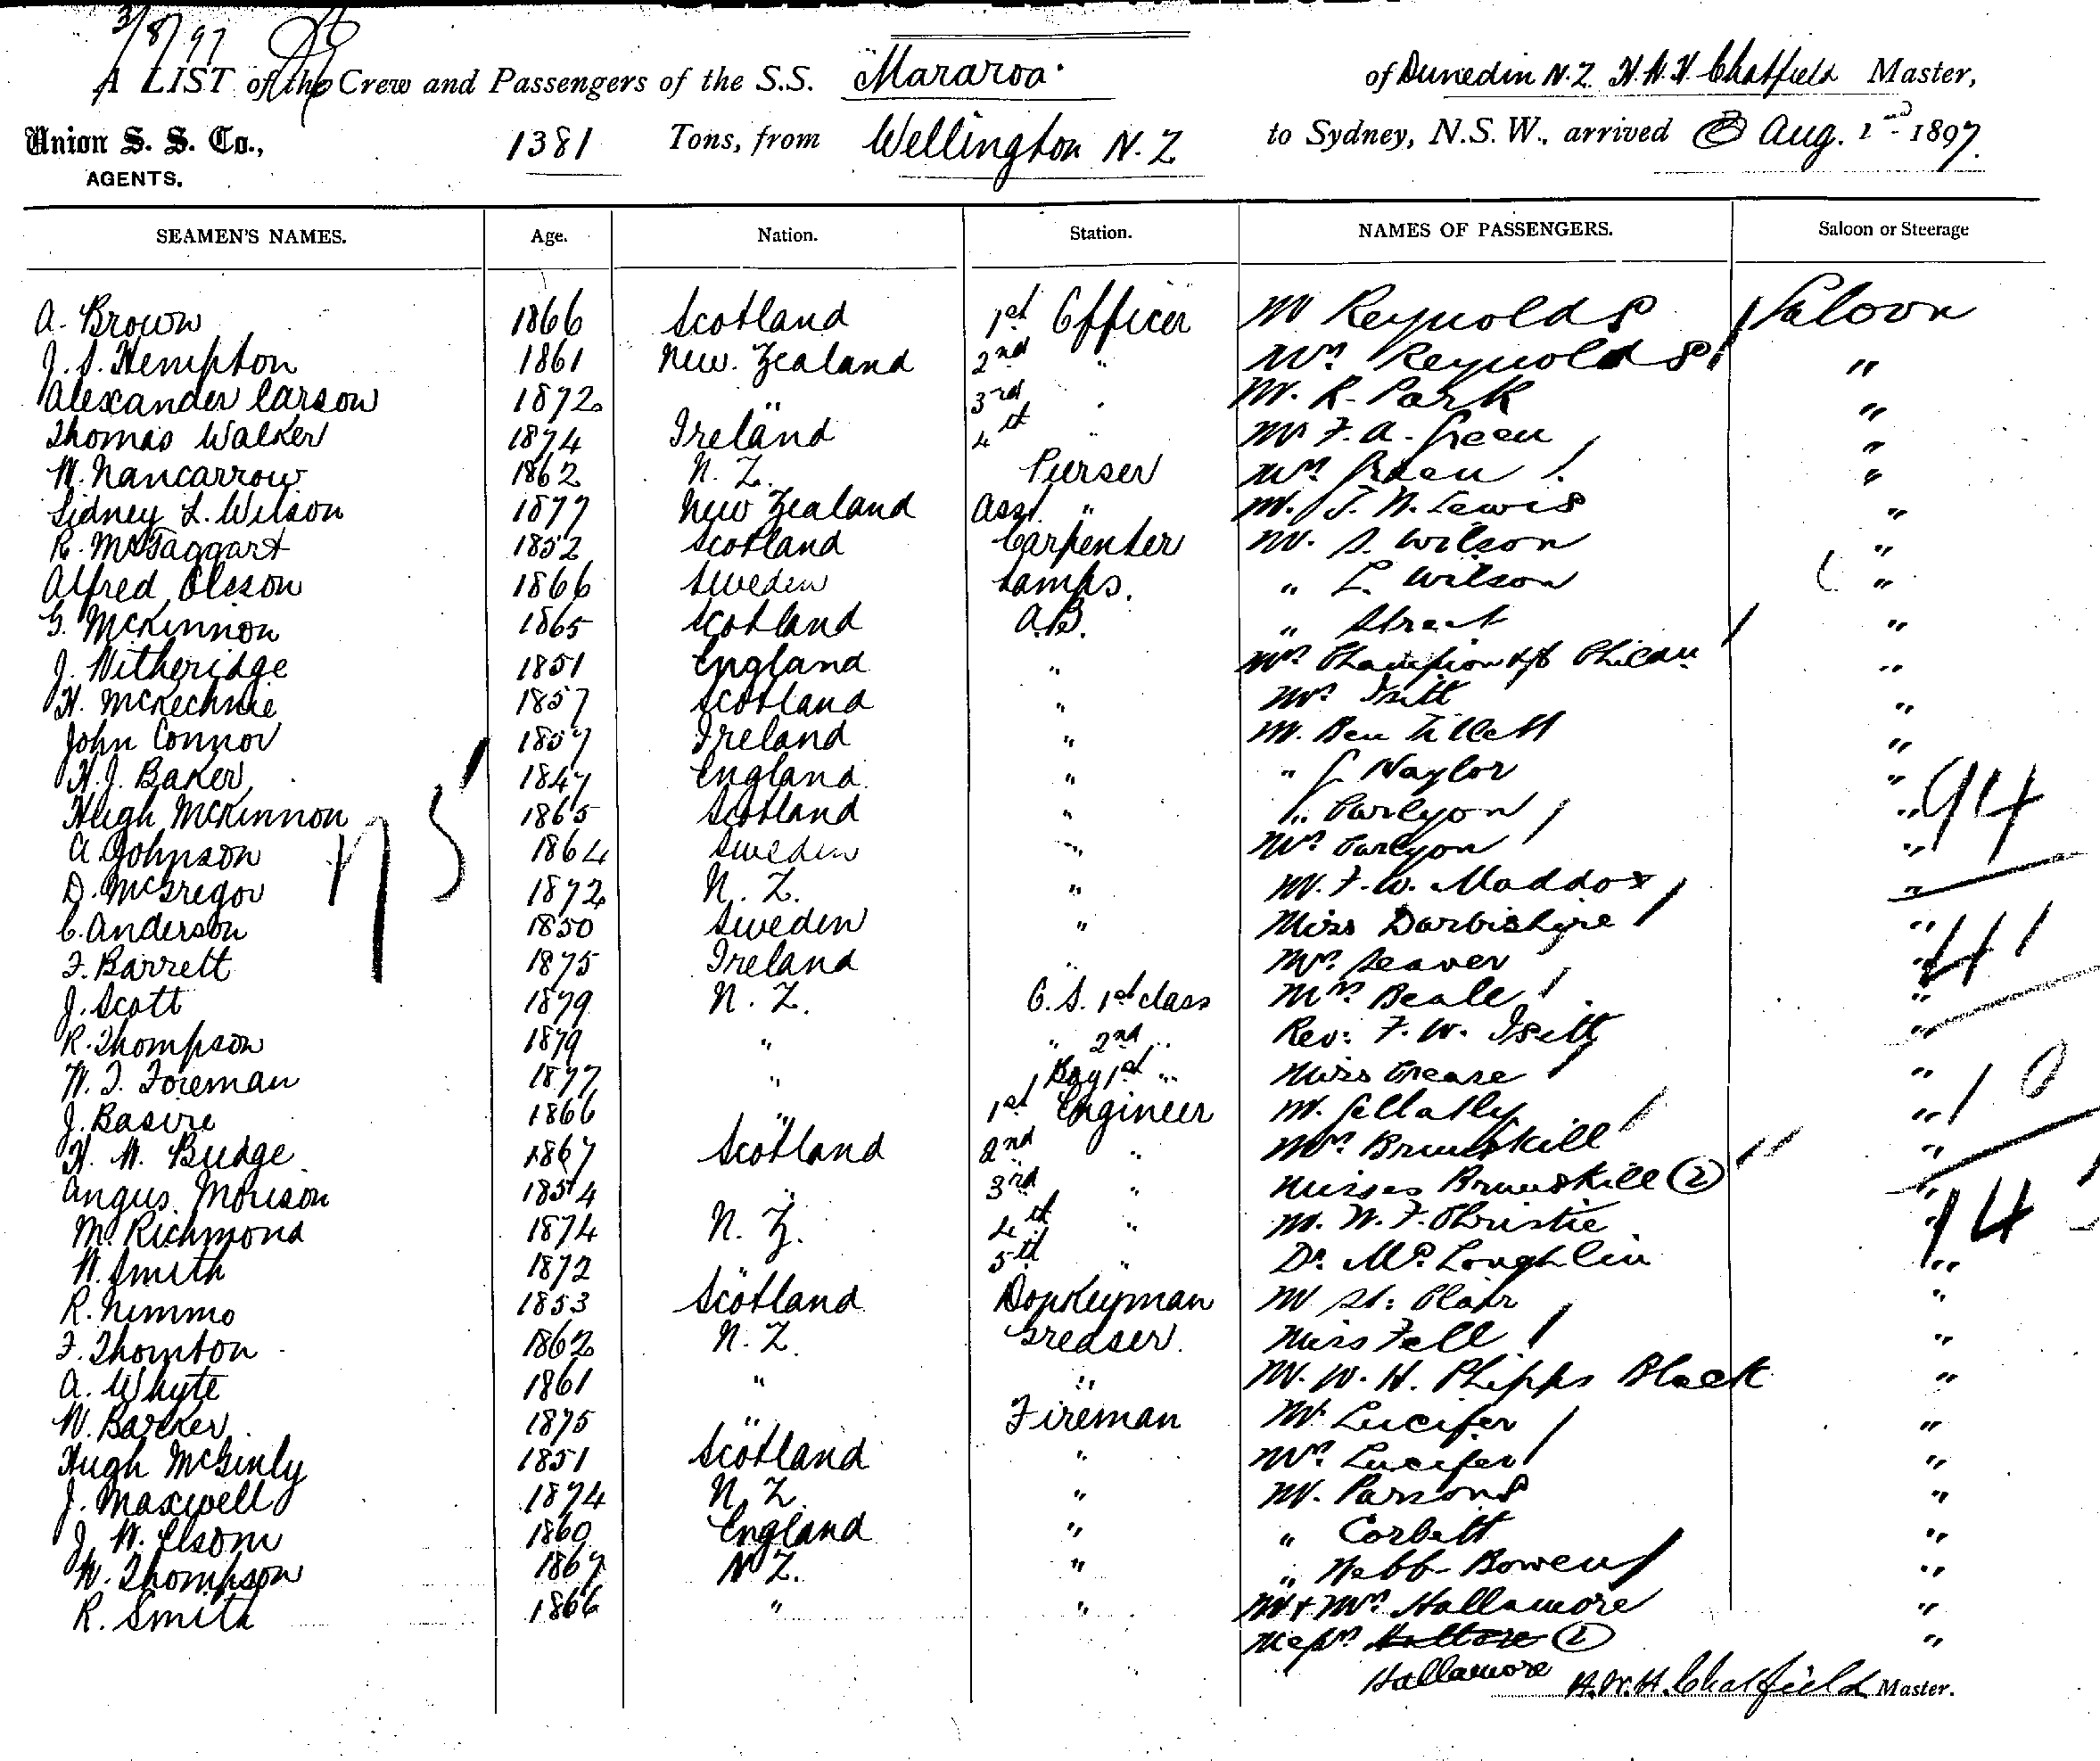 3/8/97
A LIST of the Crew and Passengers of the S.S. Mararoa of Dunedin N.Z. H.W.H. Chatfield Master,
Union S. S. Co., AGENTS. 1381 Tons, from Wellington N.Z to Sydney, N.S.W., arrived Aug. 1897.
SEAMEN'S NAMES. Age. Nation. Station. NAMES OF PASSENGERS. Saloon or Steerage
A. Brown 1866 Scotland 1st Officer Mr Reynolds Saloon
J. S. Hempton 1861 New Zealand 2nd " Mrs Reynolds "
Alexander Carson 1872 " 3rd " Mr. R. Park "
Thomas Walker 1874 Ireland 4th " Mr F. A. Green "
W. Nancarrow 1862 N. Z. Purser Mrs Green "
Sidney L. Wilson 1877 New Zealand Asst. " Mr. J. W. Lewis "
R. McTaggart 1852 Scotland Carpenter Mr. S. Wilson "
Alfred Olsson 1866 Sweden Lamps. " L. Wilson "
G. McKinnon 1865 Scotland A.B. " Street "
J. Witheridge 1851 England " Mrs Champion "
H. McKechnie 1857 Scotland " Mrs Isitt "
John Connor 1857 Ireland " Mr. Ben Tillett "
H. J. Baker 1847 England " " J Naylor "
Hugh McKinnon 1865 Scotland " " Carlyon "
A. Johnson 1864 Sweden " Mrs Carlyon "
D. McGregor 1872 N. Z. " Mr. F. W. Maddox "
C. Anderson 1850 Sweden " Miss Darbishyre "
F. Barrett 1875 Ireland " Mrs Seaver "
J. Scott 1879 N. Z. O.S. 1st class Mrs Beale "
R. Thompson 1879 " " 2nd " Rev: F. W. Isitt "
W. T. Foreman 1877 " Boy 1st " Miss Crease "
J. Basire 1866 " 1st Engineer Mr. Gellatly "
H. W. Budge 1867 Scotland 2nd " Mrs Brunskill "
Angus Morison 1854 " 3rd " Misses Brunskill (2) "
M. Richmond 1874 N. Z. 4th " Mr. W. F. Christie "
W. Smith 1872 " 5th " Dr. McLoughlin "
R. Nimmo 1853 Scotland Donkeyman Mr St. Clair "
F. Thornton 1862 N. Z. Greaser. Miss Fell "
A. Whyte 1861 " " Mr. W. H. Phipps Black "
W. Barker 1875 " Fireman Mr Lucifer "
Hugh McGinly 1851 Scotland " Mrs Lucifer "
J. Maxwell 1874 N. Z. " Mr. Parsons "
J. W. Elsom 1860 England " " Corbett "
W. Thompson 1867 N Z. " " Webb-Bowen "
R. Smith 1866 " " Mr & Mrs Hallamore "
(2) "
Hallamore
H.W.H. Chatfield Master.
75
94
41
10